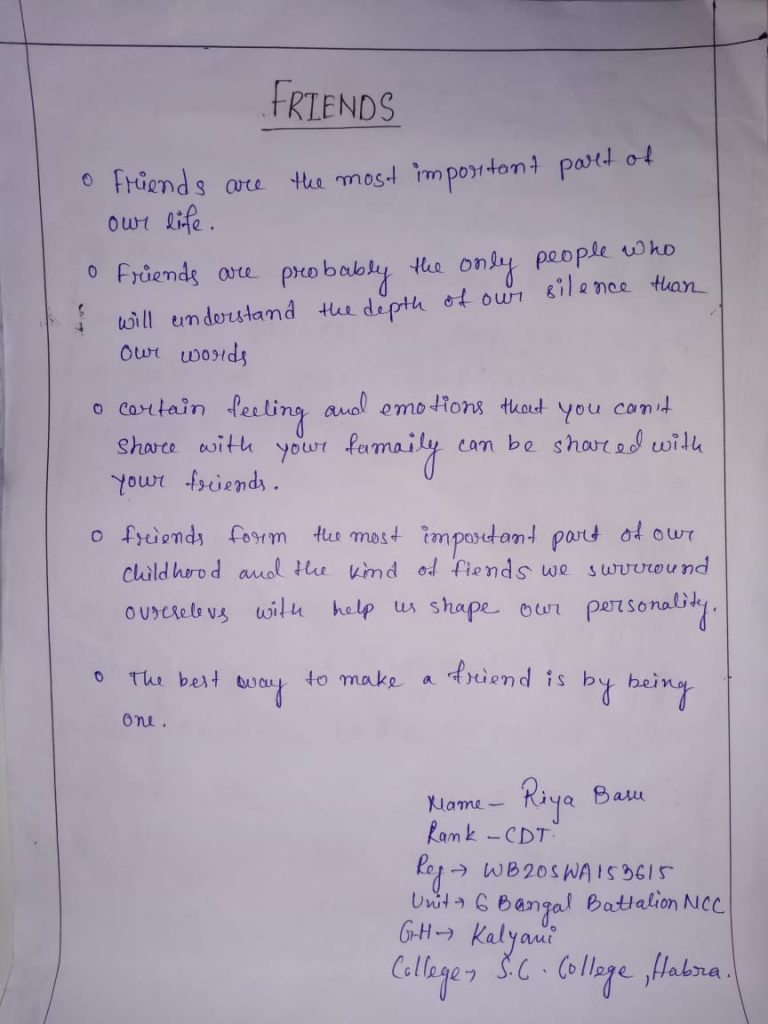 FRIENDS
o Friends are the most important part of
our life.
o Friends are probably the only people who
will understand the depth of our silence than
our words
o certain feeling and emotions that you can't
share with your famaily can be shared with
your friends.
o friends form the most important part of our
childhood and the kind of fiends we surround
ourselevs with help us shape our personality.
o The best way to make a friend is by being
one.
Name - Riya Basu
Rank - CDT.
Reg → WB20SWA153615
Unit → 6 Bangal Battalion NCC
GH → Kalyani
College → S.C. College, Habra.